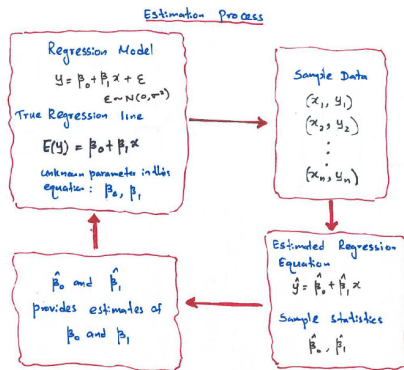 Estimation Process
Regression Model
y = β₀ + β₁x + ε
ε ~ N(0, σ²)
True Regression line
E(y) = β₀ + β₁x
unknown parameter in this
equation: β₀, β₁
Sample Data
(x₁, y₁)
(x₂, y₂)
⋮
(xₙ, yₙ)
Estimated Regression
Equation
ŷ = β̂₀ + β̂₁x
Sample statistics
β̂₀, β̂₁
β̂₀ and β̂₁
provides estimates of
β₀ and β₁